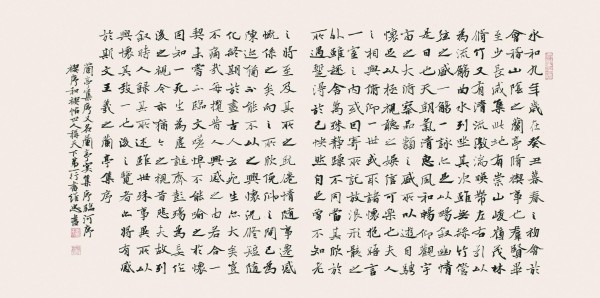 永和九年歲在癸丑暮春之初會於
會稽山陰之蘭亭脩稧事也群賢畢
至少長咸集此地有崇山峻嶺茂林
脩竹又有清流激湍暎帶左右引以
為流觴曲水列坐其次雖無絲竹管
弦之盛一觴一詠亦足以暢敘幽情
是日也天朗氣清惠風和暢仰觀宇
宙之大俯察品類之盛所以遊目騁
懷足以極視聽之娛信可樂也夫人
之相與俯仰一世或取諸懷抱悟言
一室之內或因寄所託放浪形骸之
外雖趣舍萬殊靜躁不同當其欣於
所遇蹔得於己怏然自足曾不知老
之將至及其所之既倦情隨事遷感
慨係之矣向之所欣俛仰之間已為
陳迹猶不能不以之興懷況脩短隨
化終期於盡古人云死生亦大矣豈
不痛哉每攬昔人興感之由若合一
契未嘗不臨文嗟悼不能喻之於懷
固知一死生為虛誕齊彭殤為妄作
後之視今亦猶今之視昔悲夫故列
敘時人錄其所述雖世殊事異所以
興懷其致一也後之覽者亦將有感
於斯文王羲之蘭亭集序
蘭亭集序又名蘭亭宴集序臨河序
禊序和禊帖世人稱天下第一行書